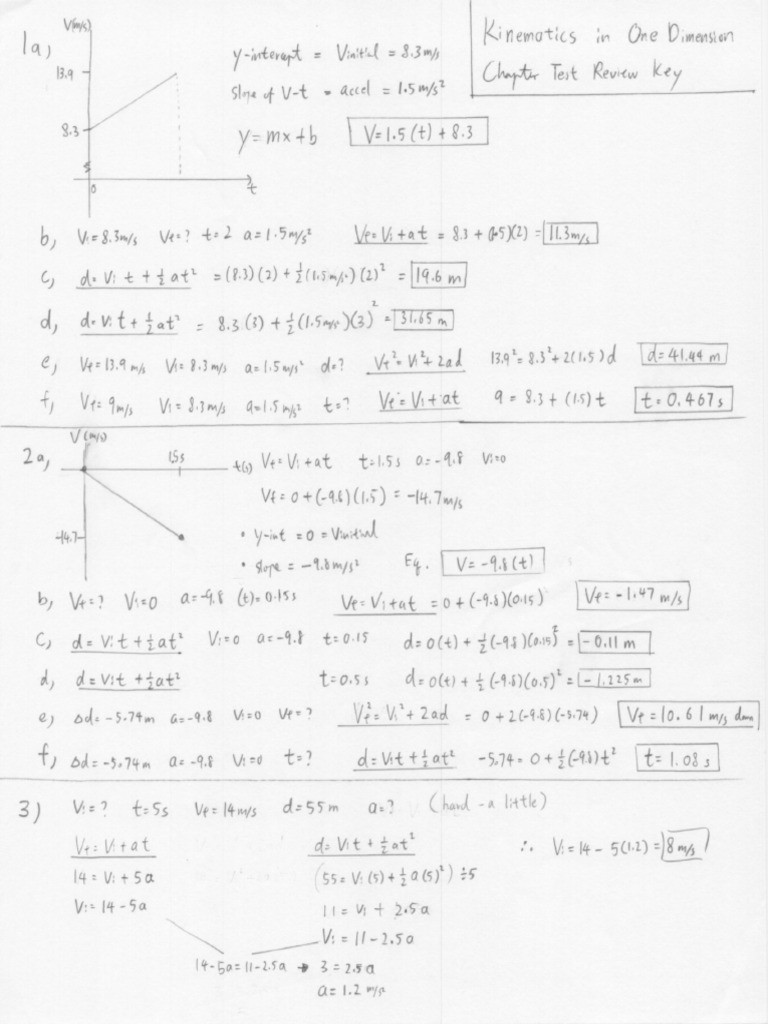 Kinematics in One Dimension
Chapter Test Review Key
1a)
V(m/s)
13.9
8.3
0
t
y-intercept = Vinitial = 8.3 m/s
slope of V-t = accel = 1.5 m/s²
y = mx + b V = 1.5(t) + 8.3
b) Vi = 8.3 m/s Vf = ? t = 2 a = 1.5 m/s² Vf = Vi + at = 8.3 + (1.5)(2) = 11.3 m/s
c) d = Vi t + ½ at² = (8.3)(2) + ½(1.5 m/s²)(2)² = 19.6 m
d) d = Vi t + ½ at² = 8.3(3) + ½(1.5 m/s²)(3)² = 31.65 m
e) Vf = 13.9 m/s Vi = 8.3 m/s a = 1.5 m/s² d = ? Vf² = Vi² + 2ad 13.9² = 8.3² + 2(1.5)d d = 41.44 m
f) Vf = 9 m/s Vi = 8.3 m/s a = 1.5 m/s² t = ? Vf = Vi + at 9 = 8.3 + (1.5)t t = 0.467 s
2a)
V(m/s)
1.5s
t(s)
-14.7
Vf = Vi + at t = 1.5s a = -9.8 Vi = 0
Vf = 0 + (-9.8)(1.5) = -14.7 m/s
• y-int = 0 = Vinitial
• slope = -9.8 m/s² Eq. V = -9.8(t)
b) Vf = ? Vi = 0 a = -9.8 (t) = 0.15s Vf = Vi + at = 0 + (-9.8)(0.15) Vf = -1.47 m/s
c) d = Vi t + ½ at² Vi = 0 a = -9.8 t = 0.15 d = 0(t) + ½(-9.8)(0.15)² = -0.11 m
d) d = Vi t + ½ at² t = 0.5s d = 0(t) + ½(-9.8)(0.5)² = -1.225 m
e) Δd = -5.74m a = -9.8 Vi = 0 Vf = ? Vf² = Vi² + 2ad = 0 + 2(-9.8)(-5.74) Vf = 10.61 m/s
f) Δd = -5.74m a = -9.8 Vi = 0 t = ? d = Vi t + ½ at² -5.74 = 0 + ½(-9.8)t² t = 1.08 s
3) Vi = ? t = 5s Vf = 14 m/s d = 55 m a = ? (hard - a little)
Vf = Vi + at
14 = Vi + 5a
Vi = 14 - 5a
d = Vi t + ½ at²
(55 = Vi(5) + ½ a(5)²) ÷ 5
11 = Vi + 2.5a
Vi = 11 - 2.5a
14 - 5a = 11 - 2.5a → 3 = 2.5a
a = 1.2 m/s²
∴ Vi = 14 - 5(1.2) = 8 m/s